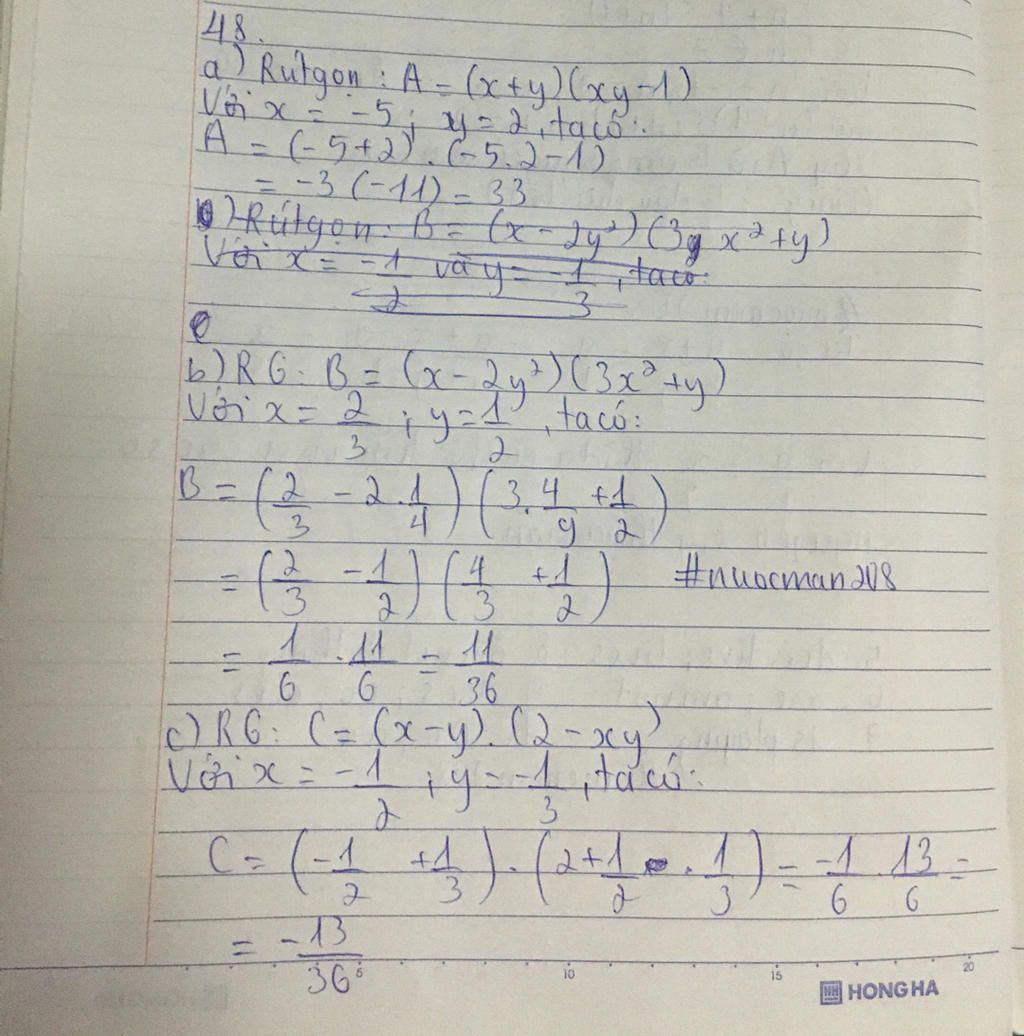 48.
a) Rút gọn: A = (x+y)(xy-1)
Với x = -5; y = 2, ta có:
A = (-5+2).(-5.2-1)
= -3(-11) = 33
b) Rút gọn: B = (x-2y²)(3y x²+y)
Với x = -1/2 và y = -1/3, ta có:
b) RG: B = (x-2y²)(3x²+y)
Với x = 2/3; y = 1/2, ta có:
B = (2/3 - 2.1/4)(3.4/9 + 1/2)
= (2/3 - 1/2)(4/3 + 1/2) #nuocman208
= 1/6 . 11/6 = 11/36
c) RG: C = (x-y).(2-xy)
Với x = -1/2; y = -1/3, ta có:
C = (-1/2 + 1/3).(2+1/2 . 1/3) = -1/6 . 13/6 =
= -13/36
5 10 15 20
HH HONG HA